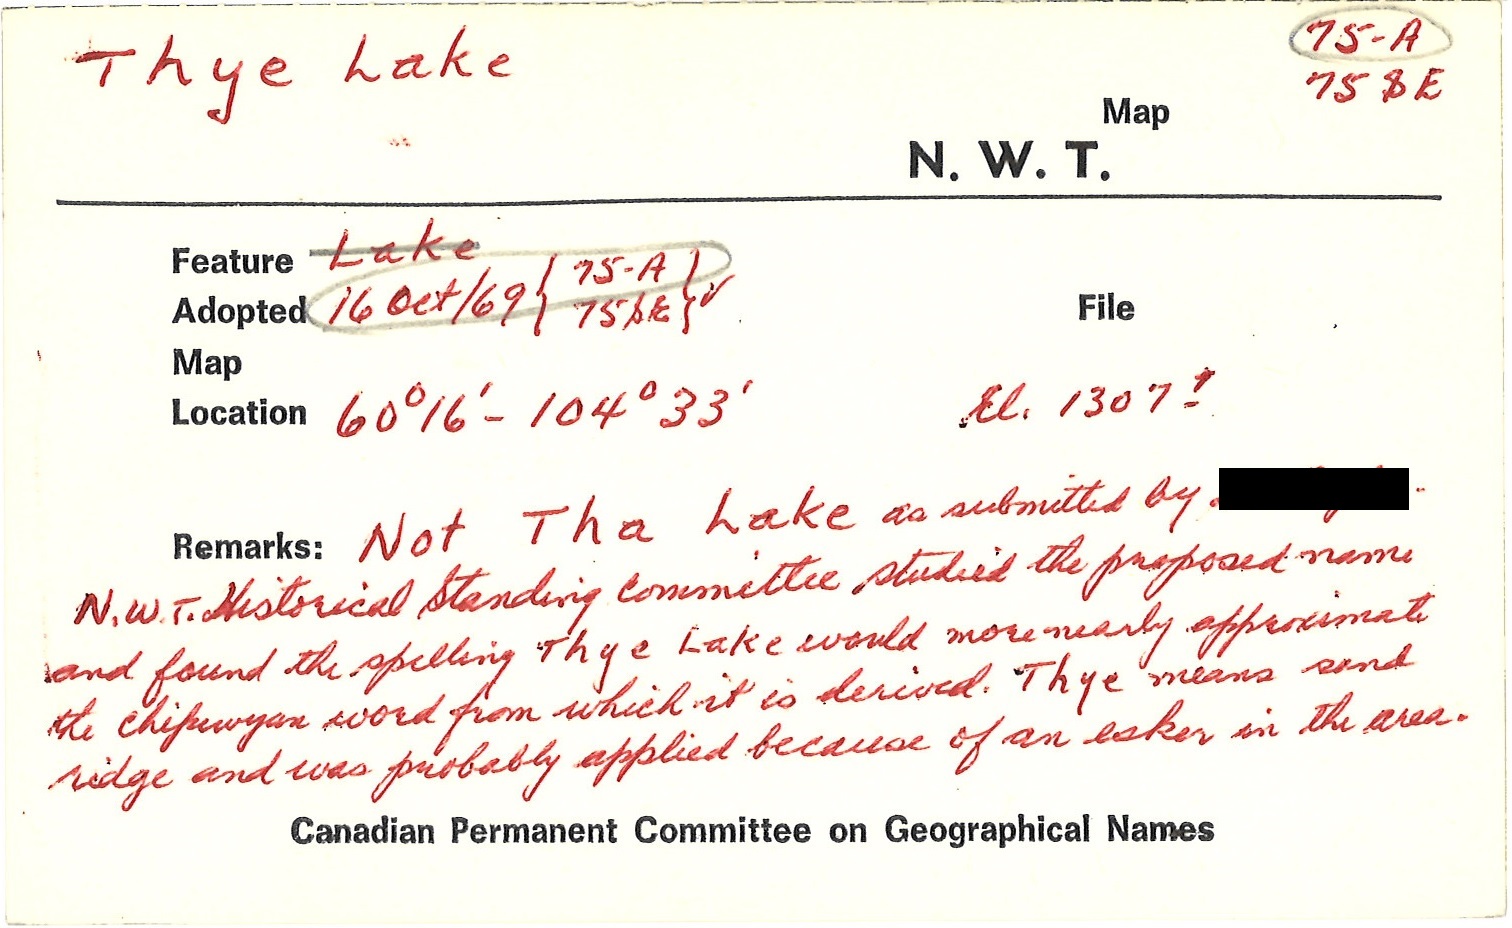 Thye Lake
75-A
75 SE
Map
N. W. T.
Feature Lake
Adopted 16 Oct/69 { 75-A
75 SE } √
File
Map
Location 60°16' - 104°33'
El. 1307±
Remarks: Not Tha Lake as submitted by
N.W.T. Historical Standing Committee studied the proposed name
and found the spelling Thye Lake would more nearly approximate
the chipewyan word from which it is derived. Thye means sand
ridge and was probably applied because of an esker in the area.
Canadian Permanent Committee on Geographical Names